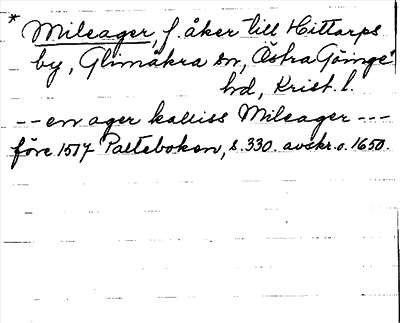 * Mileager, f. åker till Hittarps
by, Glimåkra sn, Östra Göinge
hd, Krist. l.
-- en ager kalliss Mileager ---
före 1517 Paltebokon, s. 330. avskr. o. 1650.